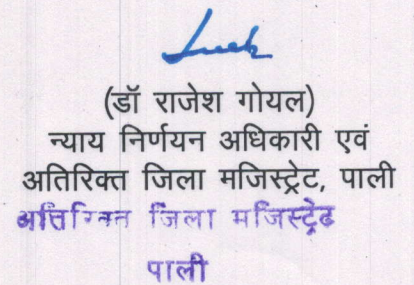 (डॉ राजेश गोयल)
न्याय निर्णयन अधिकारी एवं
अतिरिक्त जिला मजिस्ट्रेट, पाली
अतिरिक्त जिला मजिस्ट्रेट
पाली